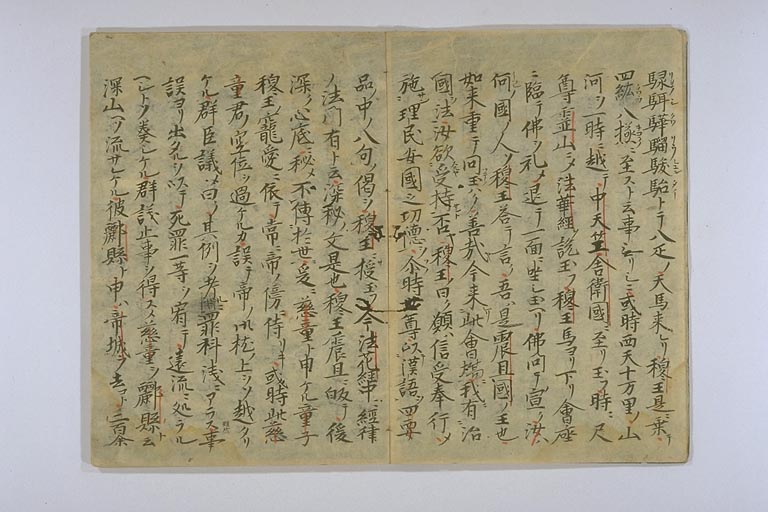 騄駬驊騮駿駘トテ八疋ノ天馬来レリ穆王是ニ乗テ
四紘八極ニ至ストト云事ナシ或時西天十万里ノ山
河ヲ一時ニ越テ中天竺舎衛國ニ至リ玉フ時ニ尺
尊霊山ニノ法華経ヲ説玉フ穆王馬ヨリ下リ會座
ニ臨テ佛ヲ礼メ退テ一面ニ坐シ玉リ佛問テ宣ク汝ハ
何ノ國ノ人ソ穆王答テ言ク吾ハ是震旦國ノ王也
如来重テ问玉ク善哉今来此會場我有治
國法汝欲受持否穆王曰ク願ハ信受奉行メ
施理民安國之功徳ヲ尒時世尊以漢語四要
品中ノ八句ノ偈ヲ穆王ニ授玉フ今法花経中経律
ノ法門有ト云深秘ノ文是也穆王震旦ニ皈テ後
深ク心底ニ秘メ不傳於世爰ニ慈童ト申ケル童子
穆王ノ寵愛ニ依テ常ニ帝ノ傍ニ侍リキ或時此慈
童君ノ空位ヲ過ケルカ誤テ帝ノ御枕ノ上ヲソ越ケリ
ケル群臣議メ曰ク其例ヲ考ルニ罪科浅ニアラス事
誤ヨリ出タルヲ以テ死罪一等ヲ宥テ遠流ニ処ラル
ヘシトソ奏シケル群議止事ヲ得スメ慈童ヲ酈縣ト云
深山ヘソ流サレケル彼酈縣ト申ハ帝城ヲ去コト三百余